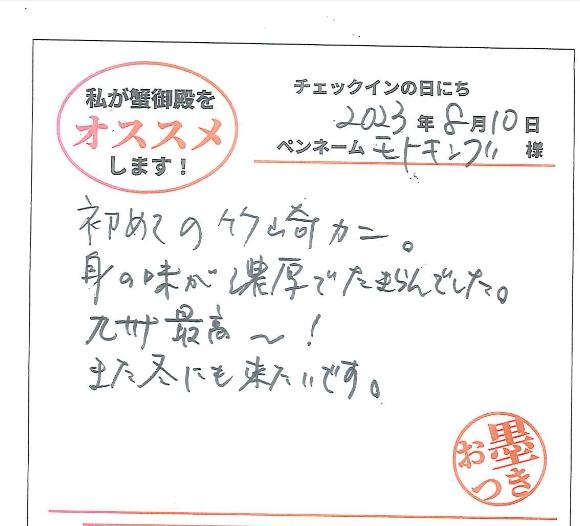 私が蟹御殿を
オススメ
します！
チェックインの日にち
2023年8月10日
ペンネーム モトキング 様
初めての竹崎カニ。
身の味が濃厚でたまらんでした。
九州最高〜！
また冬にも来たいです。
お墨
つき